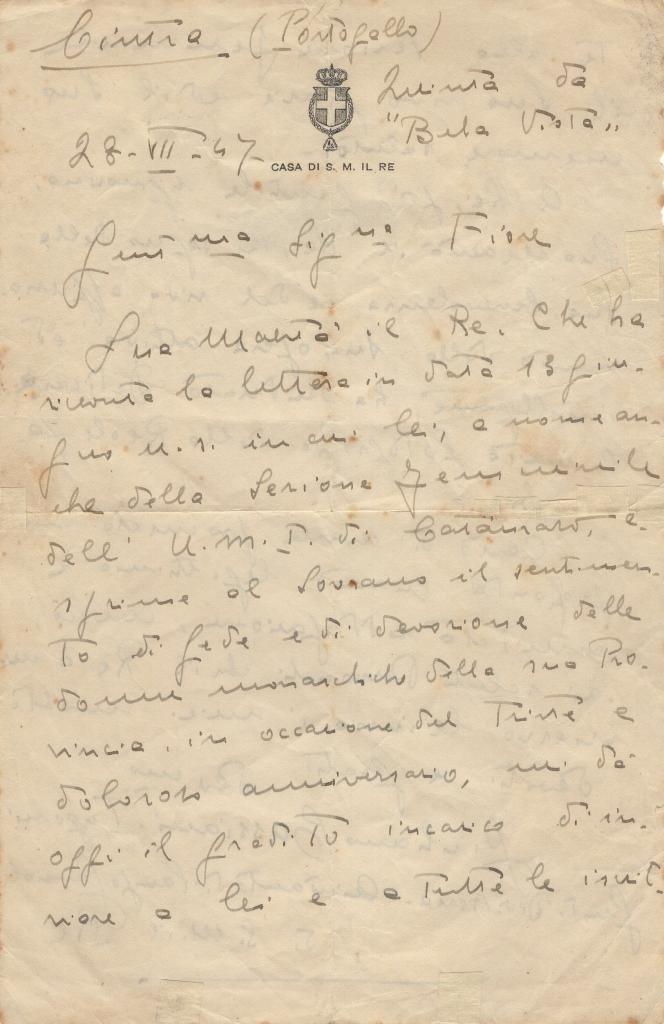 Cintra (Portogallo)
Quinta da
"Bela Vista"
28-VII-47
CASA DI S. M. IL RE
Gent.ma Sig.na Fiore
Sua Maestà il Re. Che ha
ricevuta la lettera in data 13 giu-
gno u.s. in cui lei, a nome an-
che della Sezione Femminile
dell' U.M.I. di Catanzaro, e-
sprime al Sovrano il sentimen-
to di fede e di devozione delle
donne monarchiche della sua Pro-
vincia, in occasione del triste e
doloroso anniversario, mi dà
oggi il gradito incarico di in-
viare a lei e a tutte le iscrit-